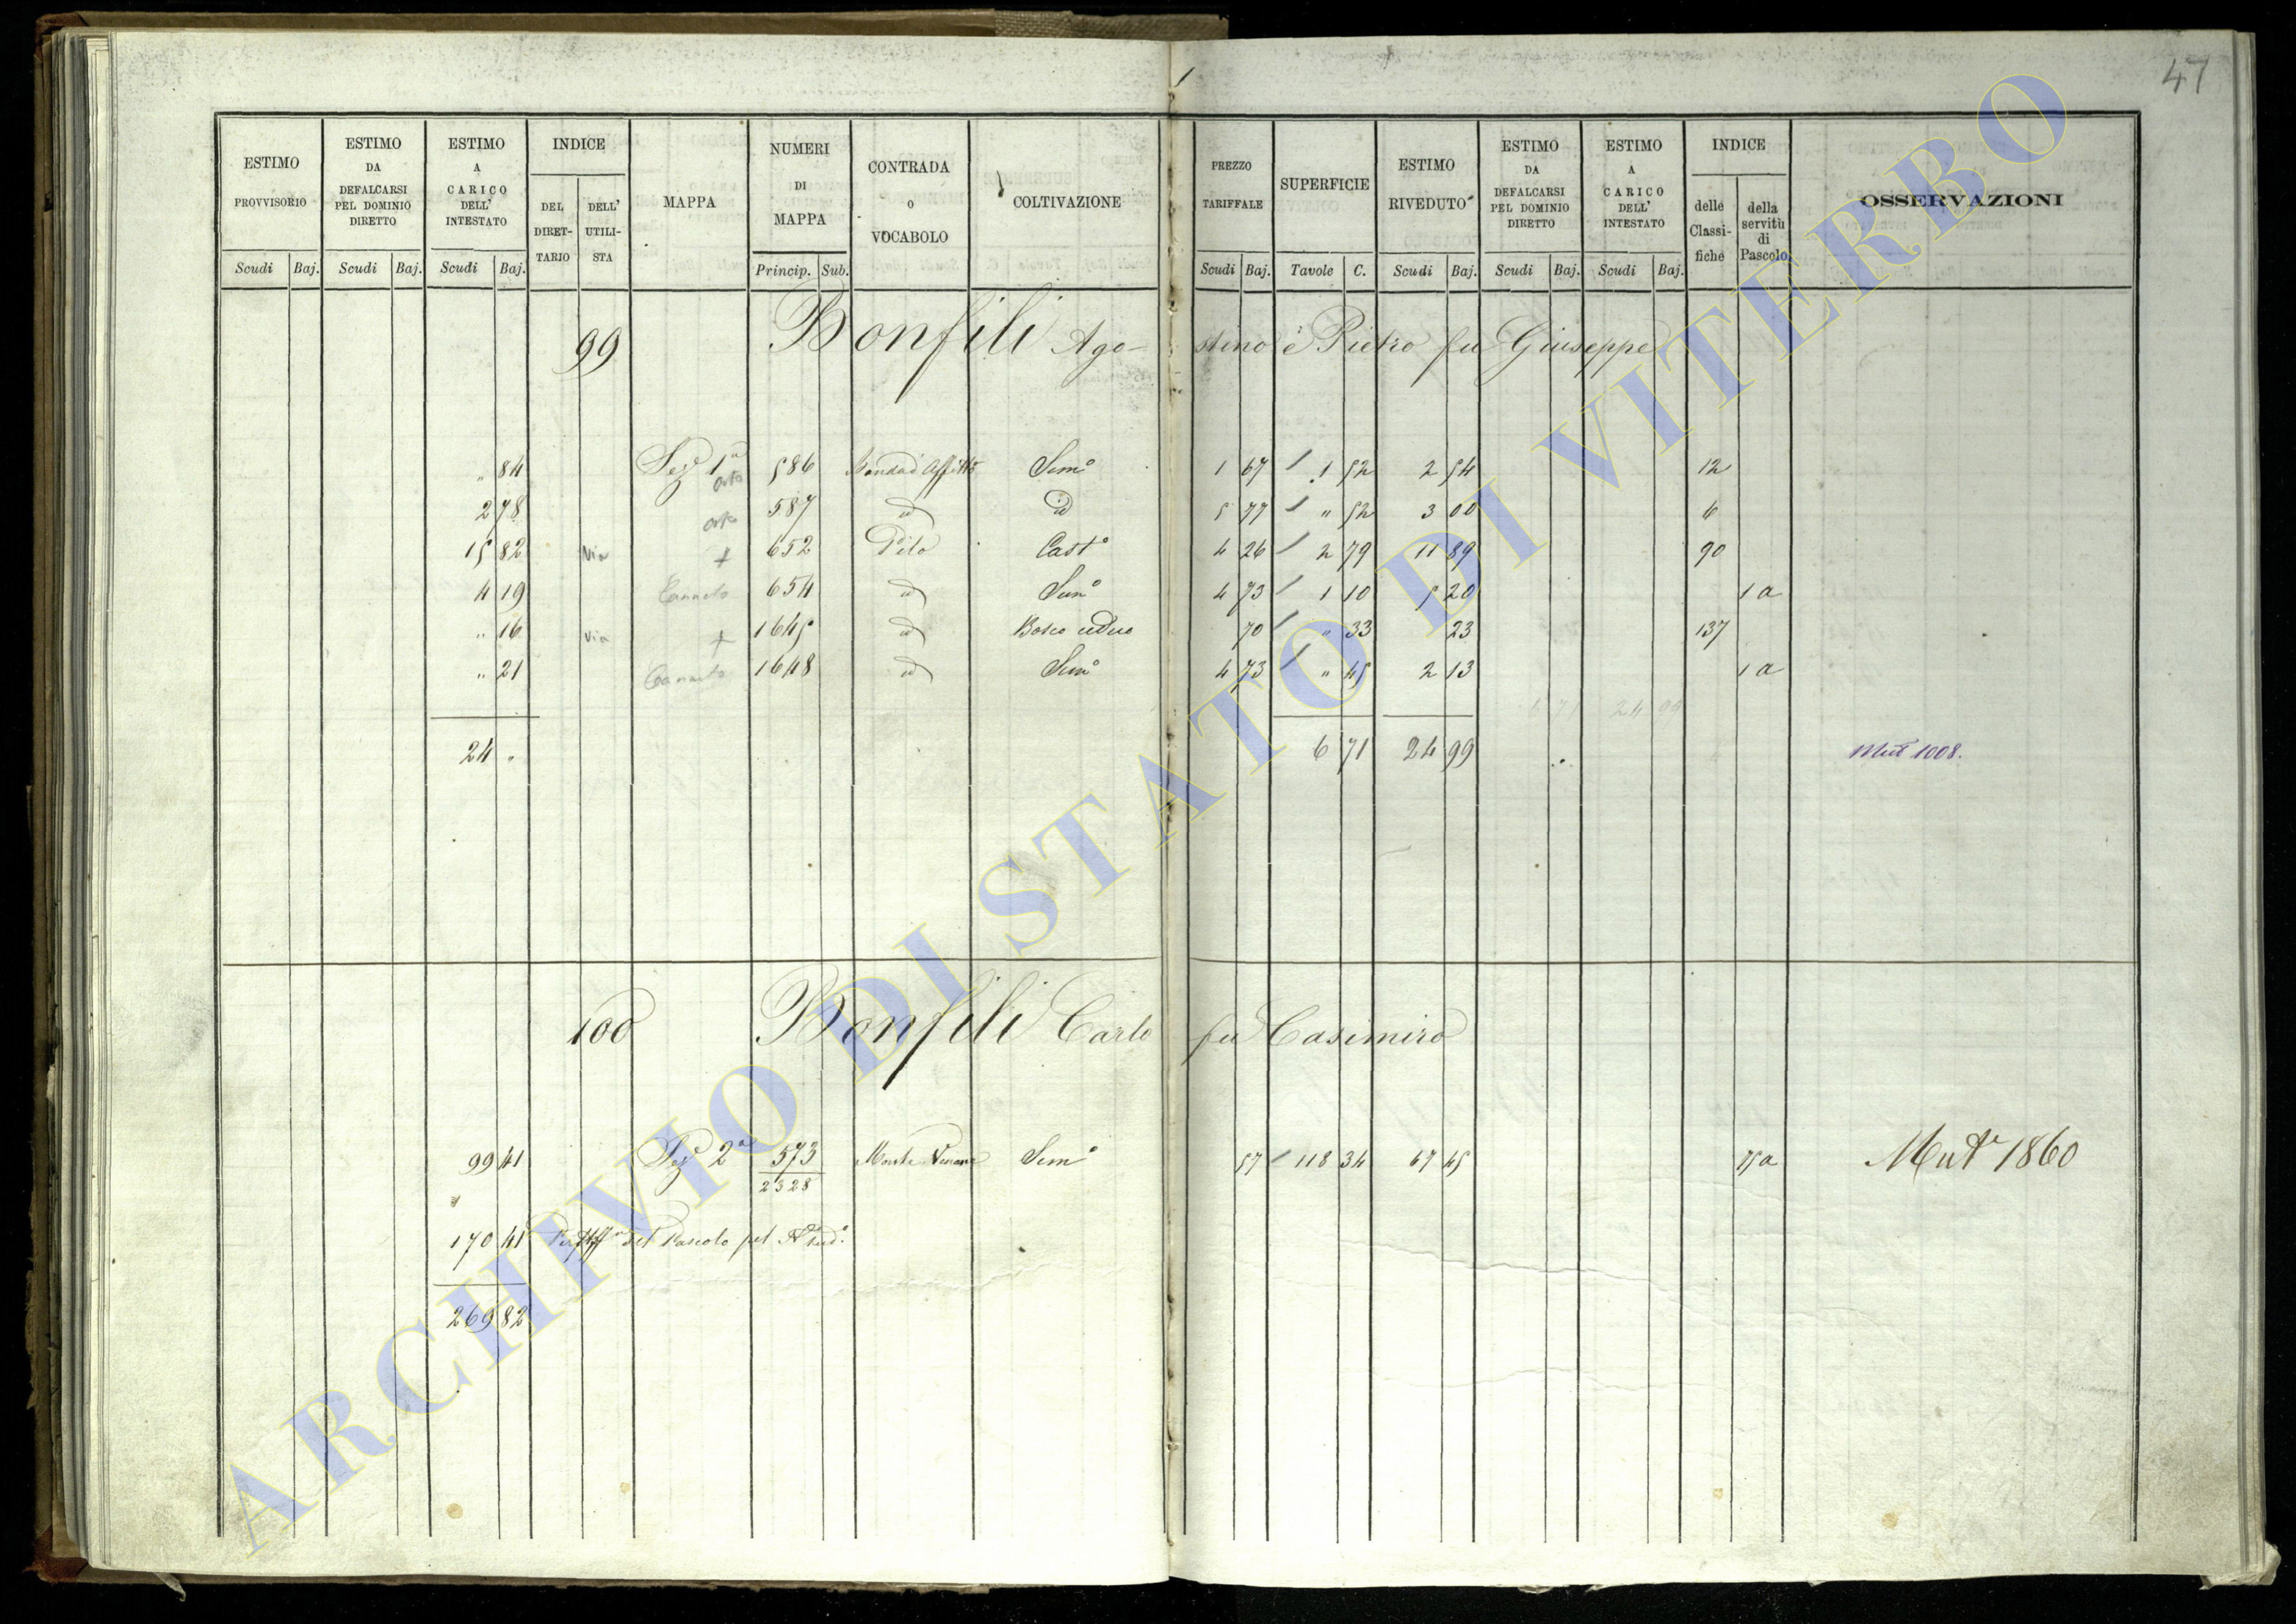 47
ESTIMO PROVVISORIO
ESTIMO DA DEFALCARSI PEL DOMINIO DIRETTO
ESTIMO A CARICO DELL' INTESTATO
INDICE
DEL DIRET-TARIO
DELL' UTILI-STA
MAPPA
NUMERI DI MAPPA
CONTRADA O VOCABOLO
COLTIVAZIONE
PREZZO TARIFFALE
SUPERFICIE
ESTIMO RIVEDUTO
ESTIMO DA DEFALCARSI PEL DOMINIO DIRETTO
ESTIMO A CARICO DELL' INTESTATO
INDICE
delle Classi-fiche
della servitù di Pascolo
OSSERVAZIONI
Scudi Baj. Scudi Baj. Scudi Baj. Princip. Sub. Scudi Baj. Tavole C. Scudi Baj. Scudi Baj. Scudi Baj.
99 Bonfili Ago-stino e Pietro fu Giuseppe
" 84 Sez 1a orto 586 Semo 1 67 1 52 2 54 12
2 78 orto 587 id id 5 77 " 52 3 00 6
15 82 Via + 652 Pilo Casto 4 26 2 79 11 89 90
4 19 Canneto 654 id Semo 4 73 1 10 5 20 1 a
" 16 Via + 1645 id Bosco ceduo 70 " 33 23 137
" 21 Canneto 1648 id Semo 4 73 " 45 2 13 1 a
6 71 24 99
24 " 6 71 24 99 Mut 1008.
100 Bonfili Carlo fu Casimiro
99 41 Sez 2a 573 Monte Semo 57 118 34 67 45 75a Muta 1860
2328
170 41 del Pascolo pel
269 82
ARCHIVIO DI STATO DI VITERBO